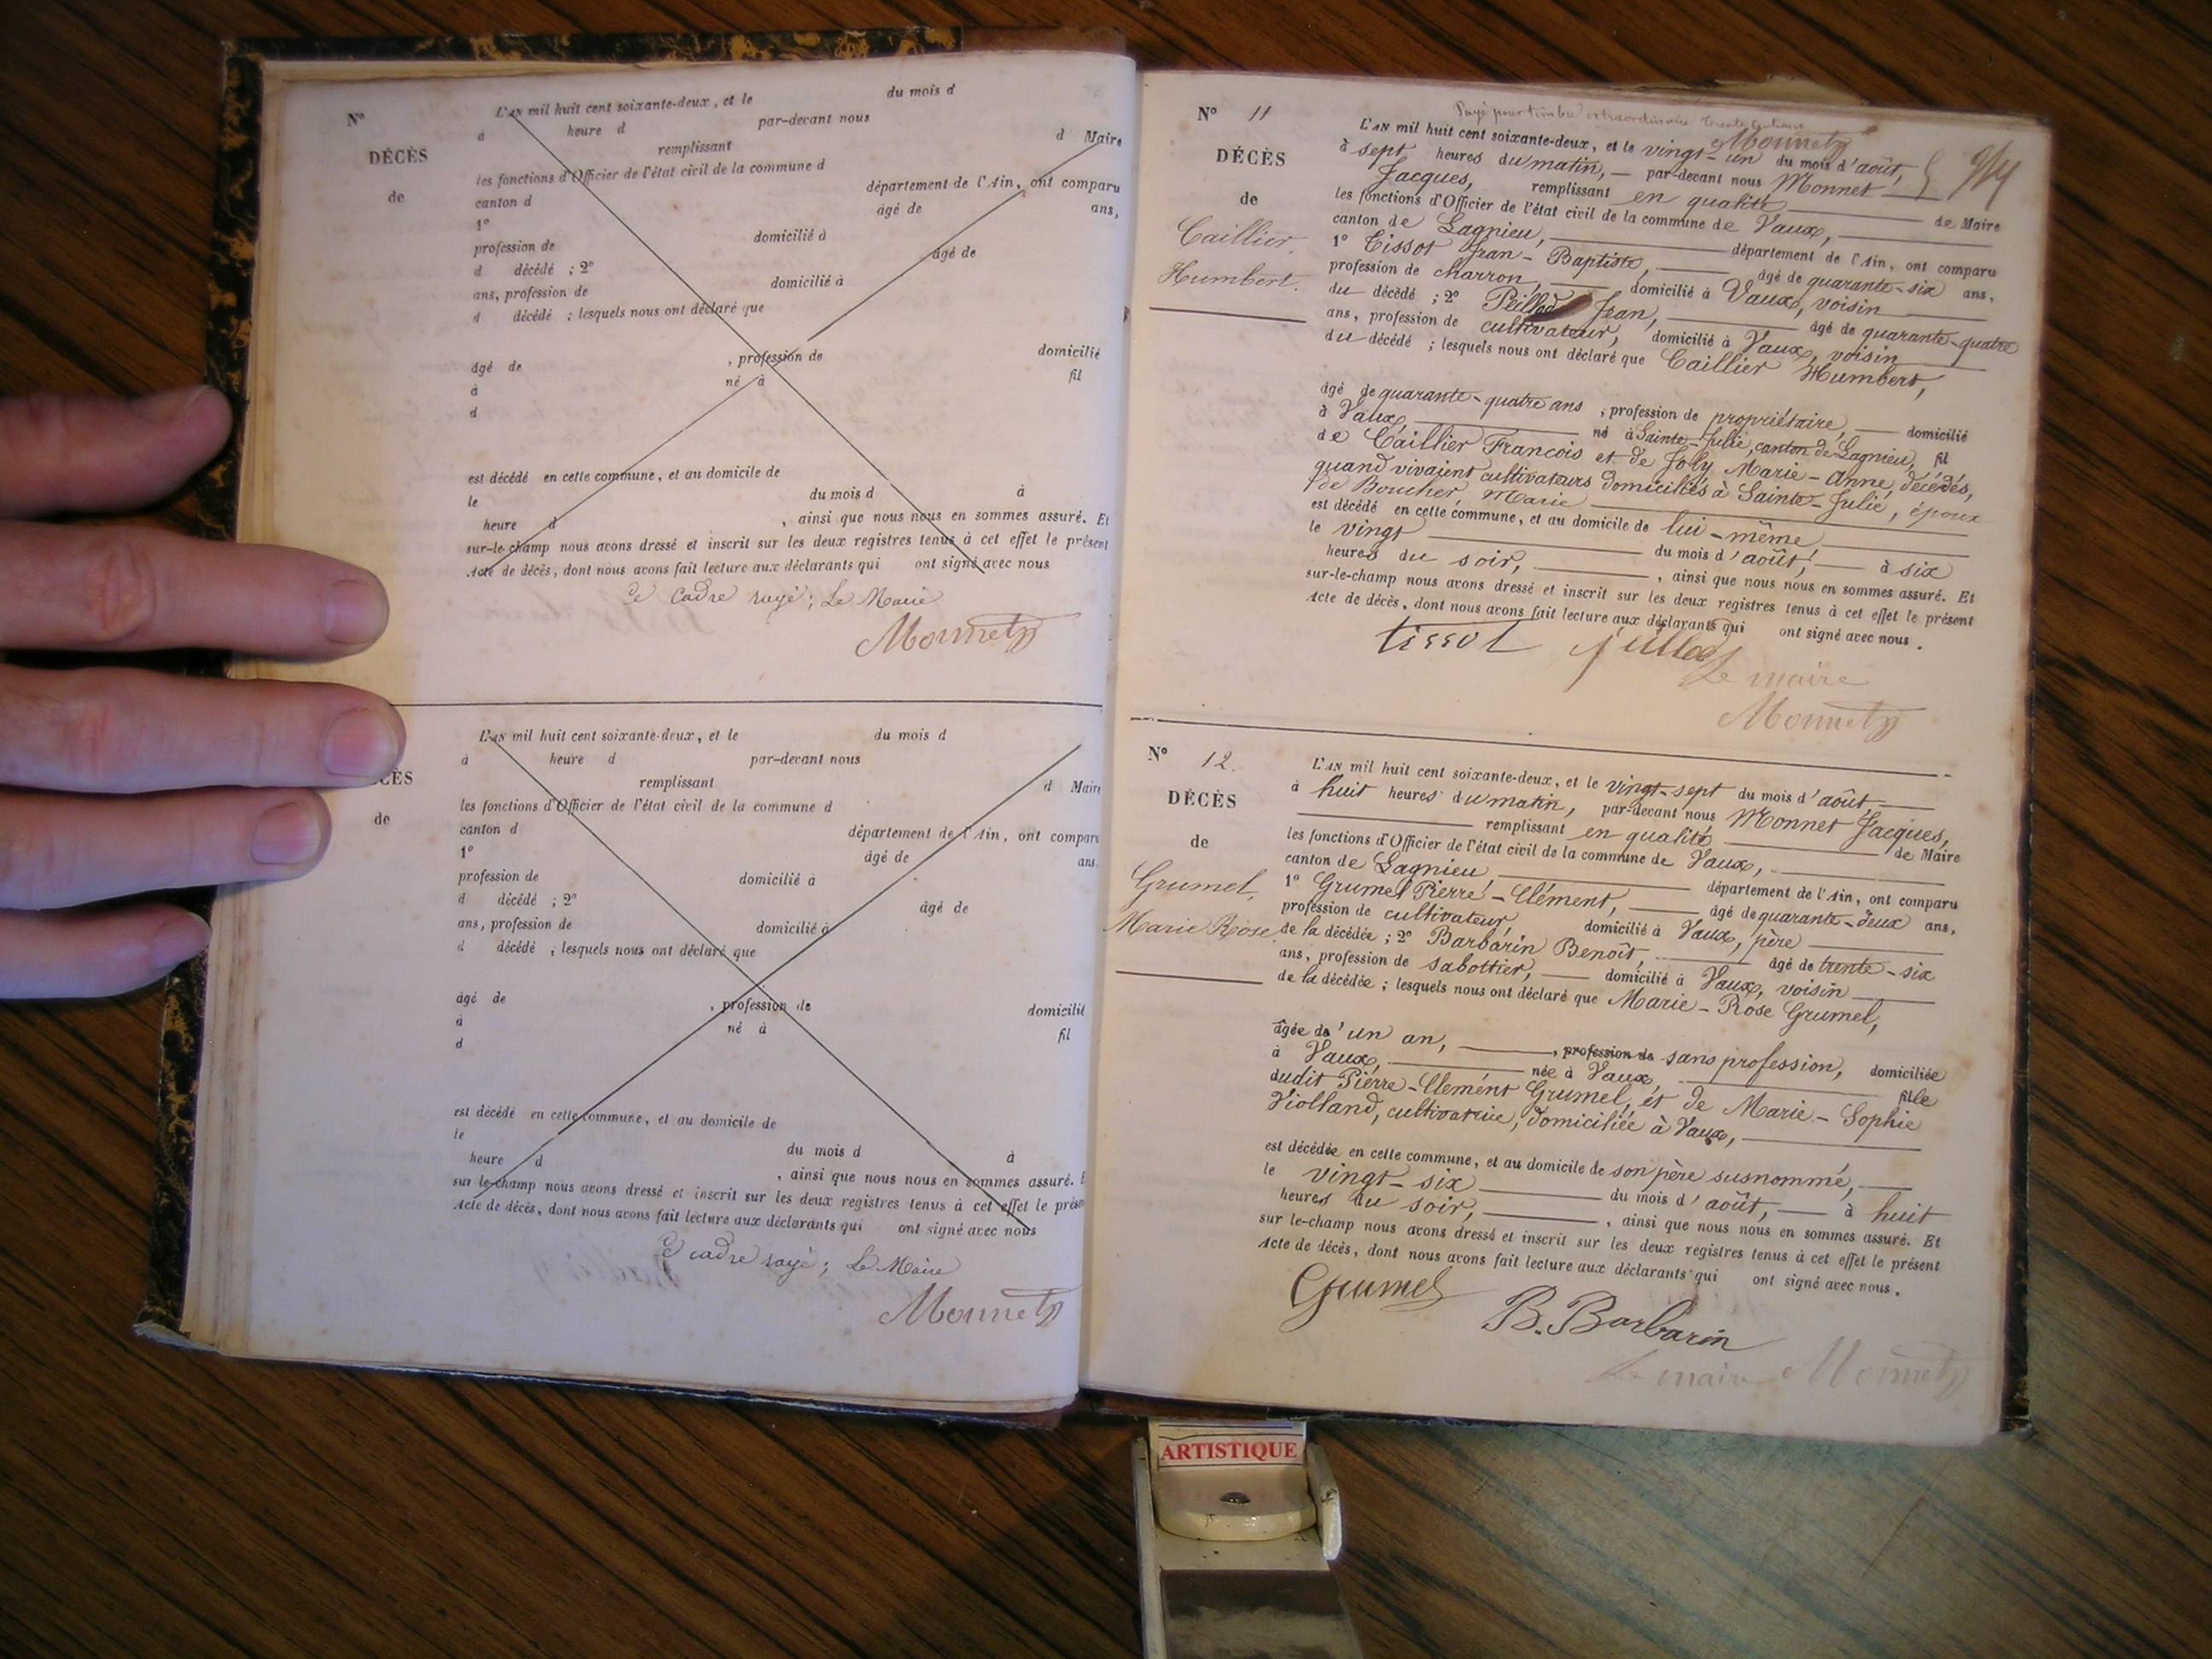 N°
DÉCÈS
de
L'AN mil huit cent soixante-deux, et le du mois d
à heure d par-devant nous
remplissant d Maire
les fonctions d'Officier de l'état civil de la commune d
canton d département de l'Ain, ont comparu
1° âgé de ans,
profession de domicilié à
d décédé ; 2° âgé de
ans, profession de domicilié à
d décédé ; lesquels nous ont déclaré que
âgé de , profession de domicilié
à né à fil
d
est décédé en cette commune, et au domicile de
le du mois d à
heure d , ainsi que nous nous en sommes assuré. Et
sur-le-champ nous avons dressé et inscrit sur les deux registres tenus à cet effet le présent
Acte de décès, dont nous avons fait lecture aux déclarants qui ont signé avec nous
Ce cadre rayé; Le Maire
Monnet
CÈS
de
L'AN mil huit cent soixante-deux, et le du mois d
à heure d par-devant nous
remplissant d Maire
les fonctions d'Officier de l'état civil de la commune d
canton d département de l'Ain, ont comparu
1° âgé de ans.
profession de domicilié à
d décédé ; 2° âgé de
ans, profession de domicilié à
d décédé , lesquels nous ont déclaré que
âgé de , profession de domicilié
à né à fil
d
est décédé en cette commune, et au domicile de
le du mois d à
heure d , ainsi que nous nous en sommes assuré. E
sur le-champ nous avons dressé et inscrit sur les deux registres tenus à cet effet le prése
Acte de décès, dont nous avons fait lecture aux déclarants qui ont signé avec nous
Ce cadre rayé; Le Maire
Monnet
Payé pour timbre extraordinaire trente centimes
Monnet
N° 11
DÉCÈS
de
Caillier
Humbert.
L'AN mil huit cent soixante-deux, et le vingt-un du mois d'août,
à sept heures du matin, par-devant nous Monnet
Jacques, remplissant en qualité de Maire
les fonctions d'Officier de l'état civil de la commune de Vaux,
canton de Lagnieu, département de l'Ain, ont comparu
1° Tissot Jean-Baptiste, âgé de quarante-six ans,
profession de charron, domicilié à Vaux, voisin
du décédé ; 2° Peillod Jean, âgé de quarante-quatre
ans, profession de cultivateur, domicilié à Vaux, voisin
du décédé ; lesquels nous ont déclaré que Caillier Humbert,
âgé de quarante-quatre ans , profession de propriétaire, domicilié
à Vaux, né à Sainte-Julie, canton de Lagnieu, fil
de Caillier Francois et de Joly Marie-Anne, décédés,
quand vivaient cultivateurs domiciliés à Sainte-Julie, époux
de Boucher Marie
est décédé en cette commune, et au domicile de lui-même
le vingt du mois d'août, à six
heures du soir, , ainsi que nous nous en sommes assuré. Et
sur-le-champ nous avons dressé et inscrit sur les deux registres tenus à cet effet le présent
Acte de décès, dont nous avons fait lecture aux déclarants qui ont signé avec nous.
tissot
Le maire
Monnet
N° 12.
DÉCÈS
de
Grumel,
Marie Rose
L'AN mil huit cent soixante-deux, et le vingt-sept du mois d'août
à huit heures du matin, par-devant nous Monnet Jacques,
remplissant en qualité de Maire
les fonctions d'Officier de l'état civil de la commune de Vaux,
canton de Lagnieu département de l'Ain, ont comparu
1° Grumel Pierre-Clément, âgé de quarante-deux ans,
profession de cultivateur, domicilié à Vaux, père
de la décédée ; 2° Barbarin Benoît, âgé de trente-six
ans, profession de sabottier, domicilié à Vaux, voisin
de la décédée ; lesquels nous ont déclaré que Marie-Rose Grumel,
âgée d'un an, , profession de sans profession, domiciliée
à Vaux, née à Vaux, fille
dudit Pierre-Clemént Grumel, et de Marie-Sophie
Violland, cultivatrice, domiciliée à Vaux,
est décédée en cette commune, et au domicile de son père susnommé,
le vingt-six du mois d'août, à huit
heures du soir, , ainsi que nous nous en sommes assuré. Et
sur le-champ nous avons dressé et inscrit sur les deux registres tenus à cet effet le présent
Acte de décès, dont nous avons fait lecture aux déclarants qui ont signé avec nous.
Grumel
B. Barbarin
Le maire Monnet
ARTISTIQUE